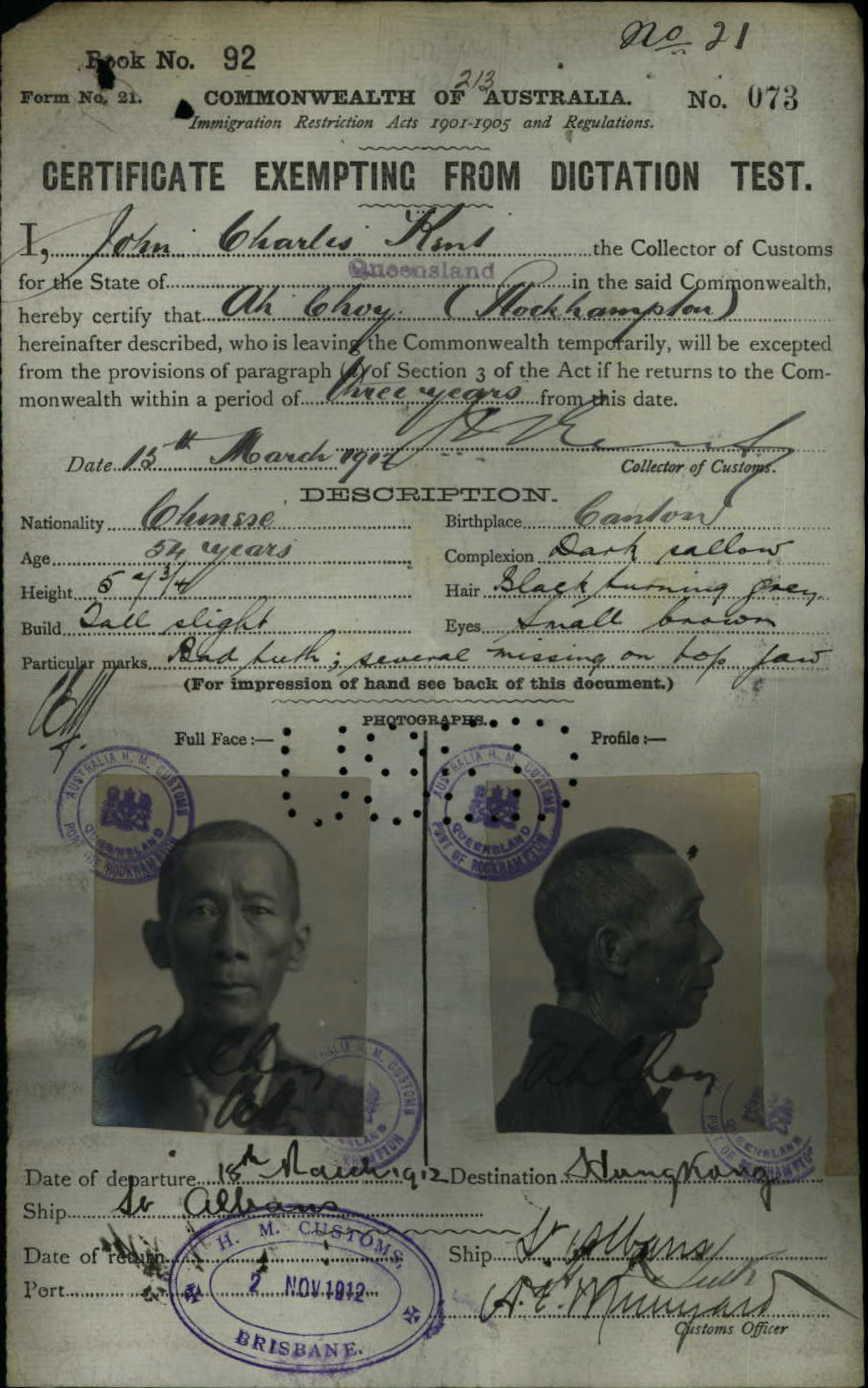 No 21
Book No. 92
213
Form No. 21. COMMONWEALTH OF AUSTRALIA. No. 073
Immigration Restriction Acts 1901-1905 and Regulations.
CERTIFICATE EXEMPTING FROM DICTATION TEST.
I, John Charles Kent the Collector of Customs
for the State of Queensland in the said Commonwealth,
hereby certify that Ah Choy (Rockhampton)
hereinafter described, who is leaving the Commonwealth temporarily, will be excepted
from the provisions of paragraph (a) of Section 3 of the Act if he returns to the Com-
monwealth within a period of three years from this date.
Date 13th March 1912
Collector of Customs.
DESCRIPTION.
Nationality Chinese Birthplace Canton
Age 54 years Complexion Dark sallow
Height 5 7 3/4 Hair Black turning grey
Build Tall slight Eyes Small brown
Particular marks Bad teeth; several missing on top jaw
(For impression of hand see back of this document.)
PHOTOGRAPHS.
Full Face:— Profile:—
AUSTRALIA H. M. CUSTOMS QUEENSLAND PORT OF ROCKHAMPTON
AUSTRALIA H. M. CUSTOMS QUEENSLAND PORT OF ROCKHAMPTON
Ah Choy
Ah Choy
Date of departure 18th March 1912 Destination Hungkong
Ship St Albans
Date of return Ship St Albans
Port
H. M. CUSTOMS.
2 NOV 1912
BRISBANE.
Customs Officer